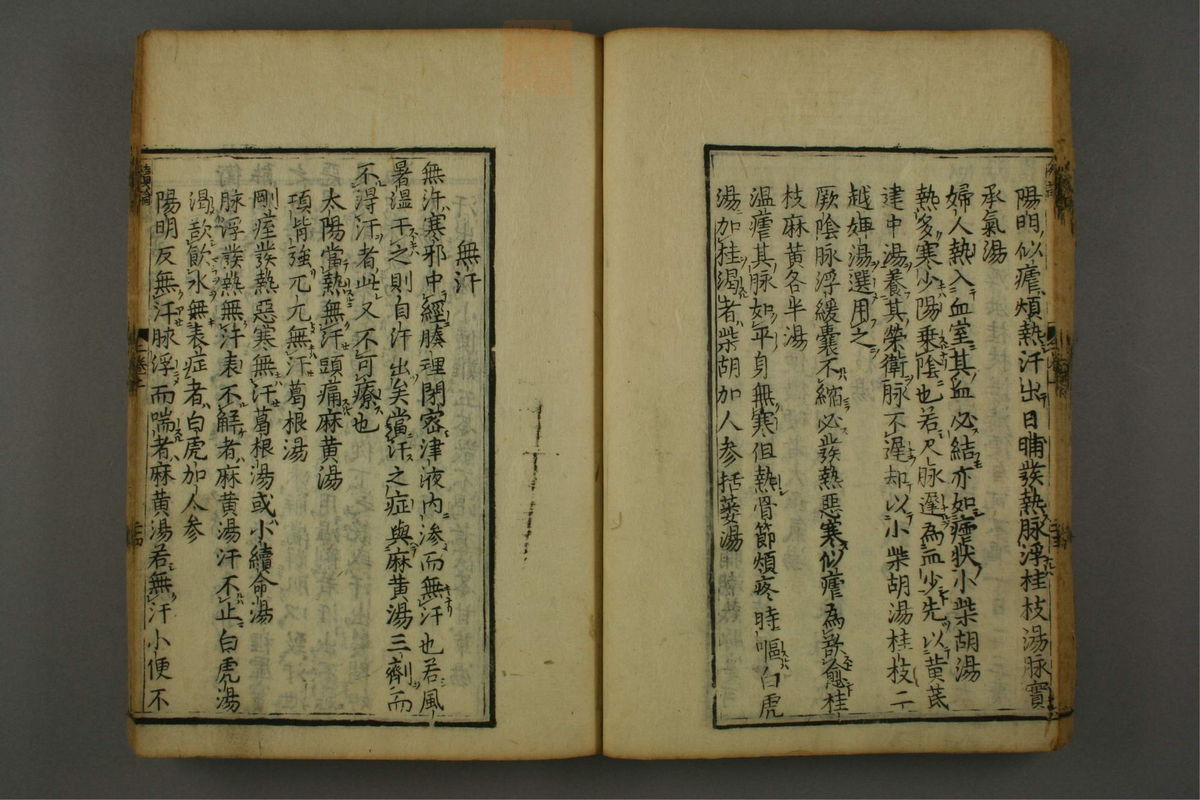 陽明似瘧煩熱汗出日晡發熱脉浮桂枝湯脉實
承氣湯
婦人熱入血室其血必結亦如瘧狀小柴胡湯
熱多寒少陽乗陰也若尺脉遲為血少先以黄茋
建中湯養其榮衛脉不遲却以小柴胡湯桂枝二
越婢湯選用之
厥陰脉浮緩囊不縮必發熱惡寒似瘧為欲愈桂
枝麻黄各半湯
温瘧其脉如平身無寒但熱骨節煩疼時嘔白虎
湯加桂渇者柴胡加人参括蔞湯
無汗
無汗寒邪中經腠理閉密津液内滲而無汗也若風
暑温干之則自汗出矣當汗之症與麻黄湯三劑而
不得汗者此又不可療也
太陽當熱無汗頭痛麻黄湯
項背強兀兀無汗葛根湯
剛痓發熱惡寒無汗葛根湯或小續命湯
脉浮發熱無汗表不解者麻黄湯汗不止白虎湯
渇欲飲水無表症者白虎加人参
陽明反無汗脉浮而喘者麻黄湯若無汗小便不